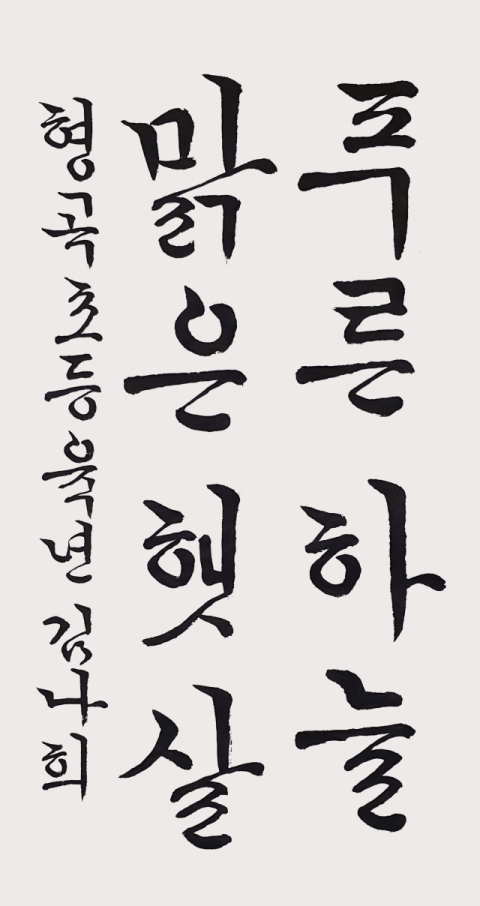 푸른 하늘
맑은 햇살
형곡초등육년 김나희